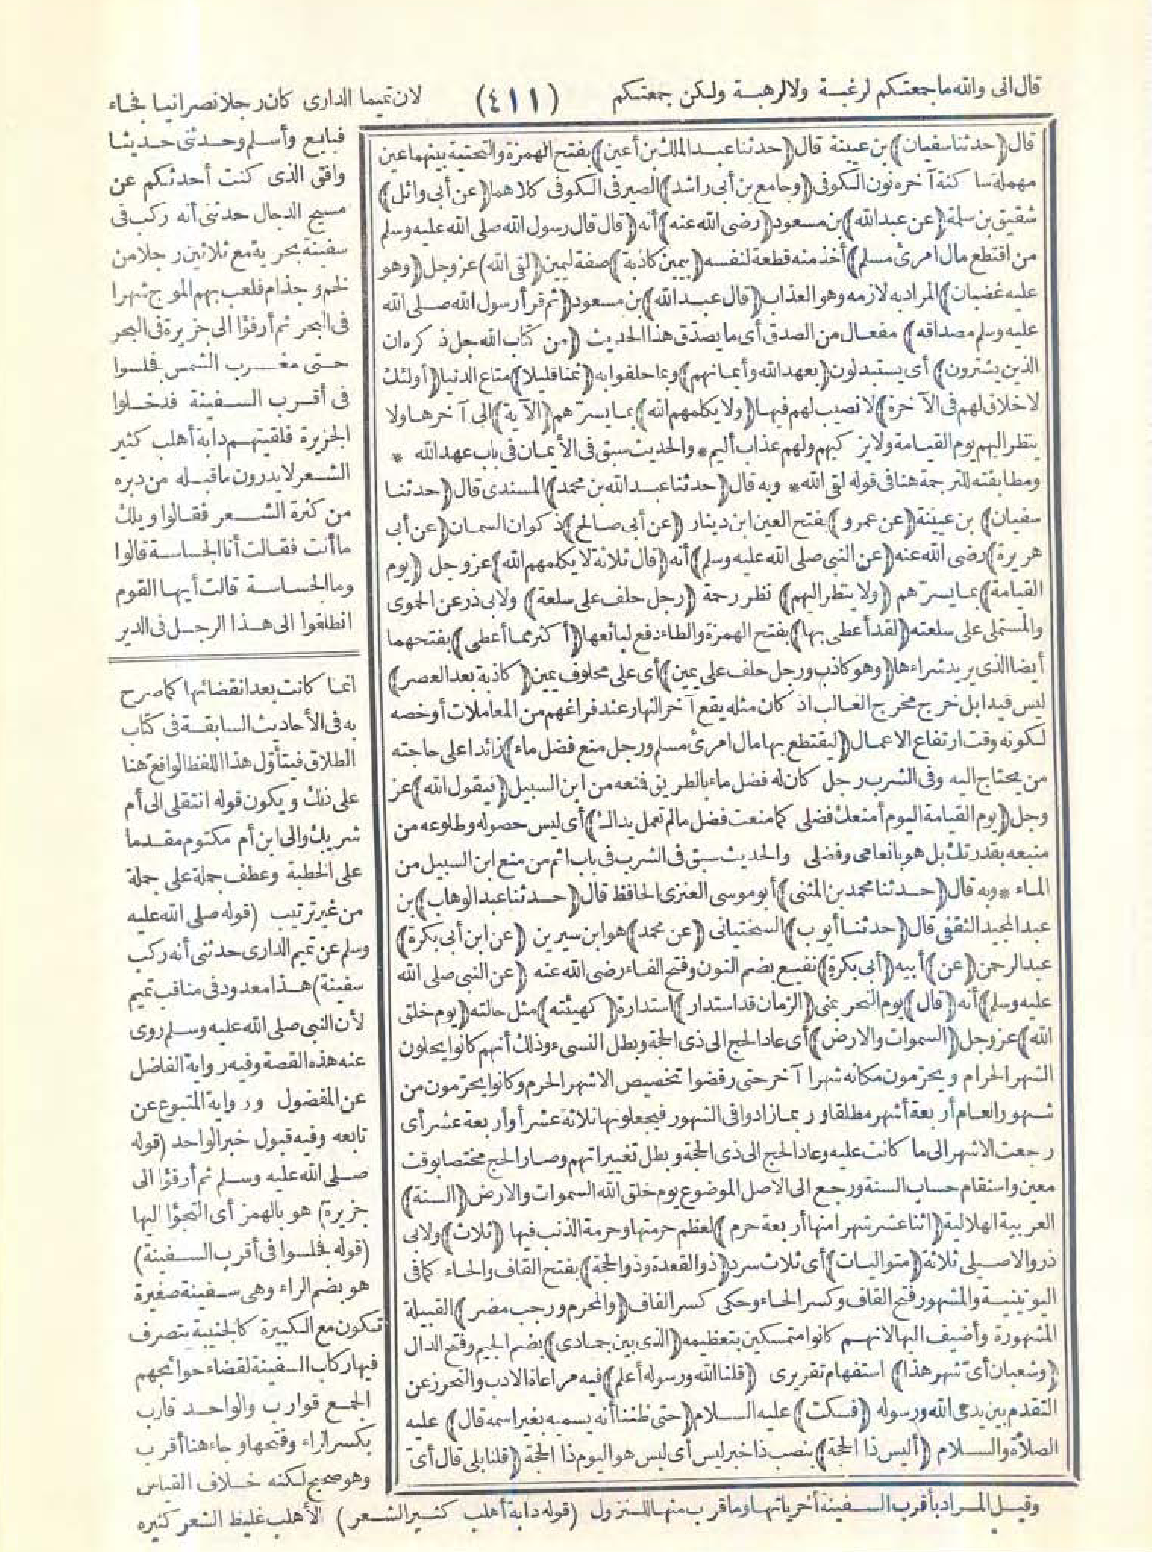 قال انى والله ما جمعتكم لرغبة ولا لرهبة ولكن جمعتكم (٤١١) لان تميما الدارى كان رجلا نصرانيا فجاء
فبايع وأسلم وحدثنى حديثا
وافق الذى كنت أحدثكم عن
مسيح الدجال حدثنى أنه ركب فى
سفينة بحرية مع ثلاثين رجلا من
لخم وجذام فلعب بهم الموج شهرا
فى البحر ثم أرفؤا الى جزيرة فى البحر
حتى مغرب الشمس فجلسوا
فى أقرب السفينة فدخلوا
الجزيرة فلقيتهم دابة أهلب كثير
الشعر لا يدرون ما قبله من دبره
من كثرة الشعر فقالوا ويلك
ما أنت فقالت أنا الجساسة قالوا
وما الجساسة قالت أيها القوم
انطلقوا الى هذا الرجل فى الدير
قال (حدثنا سفيان) بن عيينة قال (حدثنا عبد الملك بن أعين) بفتح الهمزة والتحتية بينهما عين
مهملة ساكنة آخره نون الكوفى (وجامع بن أبى راشد) الصيرفى الكوفى كلاهما (عن أبى وائل)
شقيق بن سلمة (عن عبد الله) بن مسعود (رضى الله عنه) أنه (قال قال رسول الله صلى الله عليه وسلم
من اقتطع مال امرئ مسلم) أخذ منه قطعة لنفسه (بيمين كاذبة) صفة ليمين (لقى الله) عز وجل (وهو
عليه غضبان) المراد به لازمه وهو العذاب (قال عبد الله) بن مسعود (ثم قرأ رسول الله صلى الله
عليه وسلم مصداقه) مفعال من الصدق أى ما يصدق هذا الحديث (من كتاب الله جل ذكره ان
الذين يشترون) أى يستبدلون (بعهد الله وأيمانهم) وبما حلفوا به (ثمنا قليلا) متاع الدنيا (أولئك
لا خلاق لهم فى الآخرة) لا نصيب لهم فيها (ولا يكلمهم الله) بما يسرهم (الآية) الى آخرها ولا
ينظر اليهم يوم القيامة ولا يزكيهم ولهم عذاب أليم * والحديث سبق فى الأيمان فى باب عهد الله *
ومطابقته للترجمة هنا فى قوله لقى الله * وبه قال (حدثنا عبد الله بن محمد) المسندى قال (حدثنا
سفيان) بن عيينة (عن عمرو) بفتح العين ابن دينار (عن أبى صالح) ذكوان السمان (عن أبى
هريرة) رضى الله عنه (عن النبى صلى الله عليه وسلم) أنه (قال ثلاثة لا يكلمهم الله) عز وجل (يوم
القيامة) بما يسرهم (ولا ينظر اليهم) نظر رحمة (رجل حلف على سلعة) ولابى ذر عن الحموى
والمستملى على سلعته (لقد أعطى بها) بفتح الهمزة والطاء دفع لبائعها (أكثر مما أعطى) بفتحهما
أيضا الذى يريد شراءها (وهو كاذب ورجل حلف على يمين) أى على محلوف يمين (كاذبة بعد العصر)
ليس قيدا بل خرج مخرج الغالب اذ كان مثله يقع آخر النهار عند فراغهم من المعاملات أو خصه
لكونه وقت ارتفاع الاعمال (ليقتطع بها مال امرئ مسلم ورجل منع فضل ماء) زائدا على حاجته
من يحتاج اليه وفى الشرب رجل كان له فضل ماء بالطريق فمنعه من ابن السبيل (فيقول الله) عز
وجل (يوم القيامة اليوم أمنعك فضلى كما منعت فضل ما لم تعمل يداك) أى ليس حصوله وطلوعه من
منبعه بقدرتك بل هو بانعامى وفضلى والحديث سبق فى الشرب فى باب اثم من منع ابن السبيل من
الماء * وبه قال (حدثنا محمد بن المثنى) أبو موسى العنزى الحافظ قال (حدثنا عبد الوهاب) بن
عبد المجيد الثقفى قال (حدثنا أيوب) السختيانى (عن محمد) هو ابن سيرين (عن ابن أبى بكرة)
عبد الرحمن (عن) أبيه (أبى بكرة) نفيع بضم النون وفتح الفاء رضى الله عنه (عن النبى صلى الله
عليه وسلم) أنه (قال) يوم النحر بمنى (الزمان قد استدار) استدارة (كهيئته) مثل حالته (يوم خلق
الله) عز وجل (السموات والارض) أى عاد الحج الى ذى الحجة وبطل النسىء وذلك أنهم كانوا يحلون
الشهر الحرام ويحرمون مكانه شهرا آخر حتى رفضوا تخصيص الاشهر الحرم وكانوا يحرمون من
شهور العام أربعة أشهر مطلقا وربما زادوا فى الشهور فيجعلونها ثلاثة عشر أو أربعة عشر أى
رجعت الاشهر الى ما كانت عليه وعاد الحج الى ذى الحجة وبطل تغييراتهم وصار الحج مختصا بوقت
معين واستقام حساب السنة ورجع الى الاصل الموضوع يوم خلق الله السموات والارض (السنة)
العربية الهلالية (اثنا عشر شهرا منها أربعة حرم) لعظم حرمتها وحرمة الذنب فيها (ثلاث) ولابى
ذر والاصيلى ثلاثة (متواليات) أى ثلاث سرد (ذو القعدة وذو الحجة) بفتح القاف والحاء كما فى
اليونينية والمشهور فتح القاف وكسر الحاء وحكى كسر القاف (والمحرم ورجب مضر) القبيلة
المشهورة وأضيف اليها لانهم كانوا متمسكين بتعظيمه (الذى بين جمادى) بضم الجيم وفتح الدال
(وشعبان أى شهر هذا) استفهام تقريرى (قلنا الله ورسوله أعلم) فيه مراعاة الادب والتحرز عن
التقدم بين يدى الله ورسوله (فسكت) عليه السلام (حتى ظننا أنه يسميه بغير اسمه قال) عليه
الصلاة والسلام (أليس ذا الحجة) بنصب ذا خبر ليس أى ليس هو اليوم ذا الحجة (قلنا بلى قال أى
انما كانت بعد انقضائها كما صرح
به فى الأحاديث السابقة فى كتاب
الطلاق فيتأول هذا اللفظ الواقع هنا
على ذلك ويكون قوله انتقلى الى أم
شريك والى ابن أم مكتوم مقدما
على الخطبة وعطف جملة على جملة
من غير ترتيب (قوله صلى الله عليه
وسلم عن تميم الدارى حدثنى أنه ركب
سفينة) هذا معدود فى مناقب تميم
لأن النبى صلى الله عليه وسلم روى
عنه هذه القصة وفيه رواية الفاضل
عن المفضول ورواية المتبوع عن
تابعه وفيه قبول خبر الواحد (قوله
صلى الله عليه وسلم ثم أرفؤا الى
جزيرة) هو بالهمز أى التجؤا اليها
(قوله فجلسوا فى أقرب السفينة)
هو بضم الراء وهى سفينة صغيرة
تكون مع الكبيرة كالجنيبة يتصرف
فيها ركاب السفينة لقضاء حوائجهم
الجمع قوارب والواحد قارب
بكسر الراء وفتحها وجاء هنا أقرب
وهو صحيح لكنه خلاف القياس
وقيل المراد بأقرب السفينة أخرياتها وما قرب منها للنزول (قوله دابة أهلب كثير الشعر) الأهلب غليظ الشعر كثيره